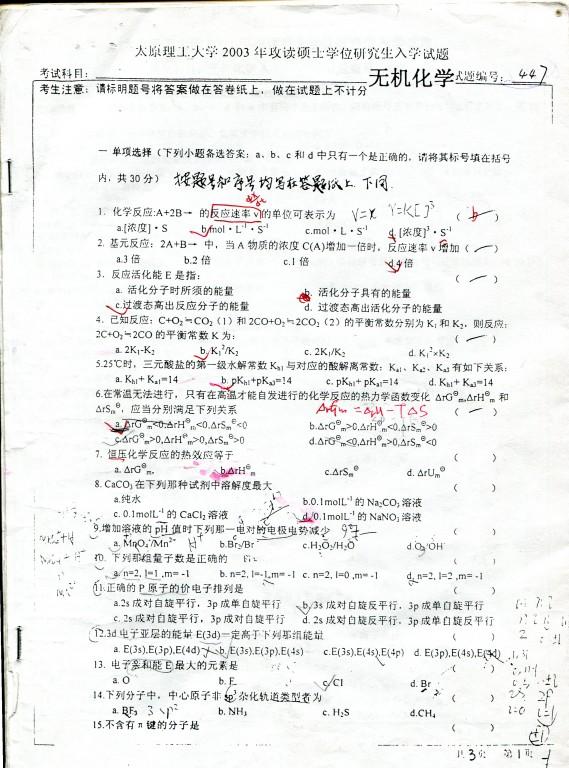 太原理工大学 2003 年攻读硕士学位研究生入学试题
考试科目： 无机化学 试题编号： 447
考生注意：请标明题号将答案做在答卷纸上，做在试题上不计分
一 单项选择（下列小题备选答案：a、b、c 和 d 中只有一个是正确的，请将其标号填在括号
内，共 30 分） 按题号和序号均写在答题纸上 下同.
1．化学反应:A+2B→ 的反应速率 v 的单位可表示为 （ b ）
a.[浓度]·S b.mol·L⁻¹·S⁻¹ c.mol·L·S⁻¹ d.[浓度]³·S⁻¹
2．基元反应：2A+B→ 中，当 A 物质的浓度 C(A)增加一倍时，反应速率 v 增加（ ）
a.3 倍 b.2 倍 c.1 倍 d.4 倍
3．反应活化能 E 是指： （ ）
a. 活化分子时所须的能量 b. 活化分子具有的能量
c.过渡态高出反应分子的能量 d.过渡态高出活化分子的能量
4．已知反应：C+O₂≒CO₂（1）和 2CO+O₂≒2CO₂（2）的平衡常数分别为 K₁ 和 K₂，则反应:
2C+O₂≒2CO 的平衡常数 K 为： （ ）
a. 2K₁-K₂ b. K₁²/K₂ c. 2K₁/K₂ d. K₁²×K₂
5.25℃时，三元酸盐的第一级水解常数 Kh1 与对应的酸解离常数：Ka1、Ka2、Ka3 有如下关系：
a. Kh1+ Ka1=14 b. pKh1+pKa3=14 c. pKh1+ pKa1=14 d. Kh1+ Ka3=14
6.在常温无法进行，只有在高温才能自发进行的化学反应的热力学函数变化 ΔrG⊖m,ΔrH⊖m 和
ΔrS⊖m，应当分别满足下列关系 ΔrGm = ΔrH - TΔS （ ）
a.ΔrG⊖m<0,ΔrH⊖m<0,ΔrS⊖m<0 b.ΔrG⊖m>0,ΔrH⊖m<0,ΔrS⊖m>0
c.ΔrG⊖m>0,ΔrH⊖m>0,ΔrS⊖m>0 d.ΔrG⊖m<0,ΔrH⊖m>0,ΔrS⊖m<0
7．恒压化学反应的热效应等于 （ ）
a. ΔrG⊖m b.ΔrH⊖m c.ΔrS⊖m d. ΔrU⊖m
8. CaCO₃ 在下列那种试剂中溶解度最大 （ ）
a.纯水 b.0.1molL⁻¹ 的 Na₂CO₃ 溶液
c. 0.1molL⁻¹ 的 CaCl₂ 溶液 d. 0.1molL⁻¹ 的 NaNO₃ 溶液
9.增加溶液的 pH 值时下列那一电对的电极电势减少 （ ）
a. MnO₄⁻/Mn²⁺ b.Br₂/Br⁻ c.H₂O₂/H₂O d.O₂/OH⁻
10. 下列那组量子数是正确的 （ ）
a. n=2, l=1 ,m= -1 b. n=2, l=-1,m= -1 c. n=2, l=0 ,m= -1 d. n=2, l=2 ,m= -1
11.正确的 P 原子的价电子排列是 （ ）
a.2s 成对自旋平行，3p 成单自旋平行 b. 3s 成对自旋反平行，3p 成单自旋平行
c. 2s 成对自旋平行，3p 成单自旋平行 d. 2s 成对自旋反平行，3p 成单自旋反平行
12.3d 电子亚层的能量 E(3d)一定高于下列那组能量 （ ）
a. E(3s),E(3p),E(4d) b. E(3s),E(3p),E(4s) c.E(3s),E(4s),E(4p) d. E(3p),E(4s),E(4d)
13. 电子亲和能 E 最大的元素是 （ ）
a. O b. F c. Cl d. Br
14.下列分子中，中心原子非 sp³ 杂化轨道类型者为 （ ）
a. BF₃ b. NH₃ c. H₂S d.CH₄
15.不含有 π 键的分子是 （ ）
共 3 页 第 1 页